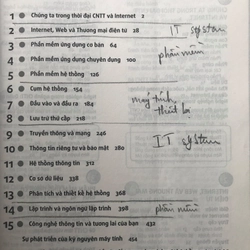 1 Chúng ta trong thời đại CNTT và Internet 2
2 Internet, Web và Thương mại điện tử 28
3 Phần mềm ứng dụng cơ bản 64
4 Phần mềm ứng dụng chuyên dụng 100
5 Phần mềm hệ thống 126
6 Cụm hệ thống 154
7 Đầu vào và đầu ra 184
8 Lưu trữ thứ cấp 218
9 Truyền thông và mạng 246
10 Thông tin riêng tư và bảo mật 280
11 Hệ thống thông tin 312
12 Cơ sở dữ liệu 338
13 Phân tích và thiết kế hệ thống 368
14 Lập trình và ngôn ngữ lập trình 398
15 Công nghệ thông tin và tương lai của bạn 432
Sự phát triển của kỷ nguyên máy tính 454
IT system
phần mềm
máy tính
thiết bị
IT system
phần mềm